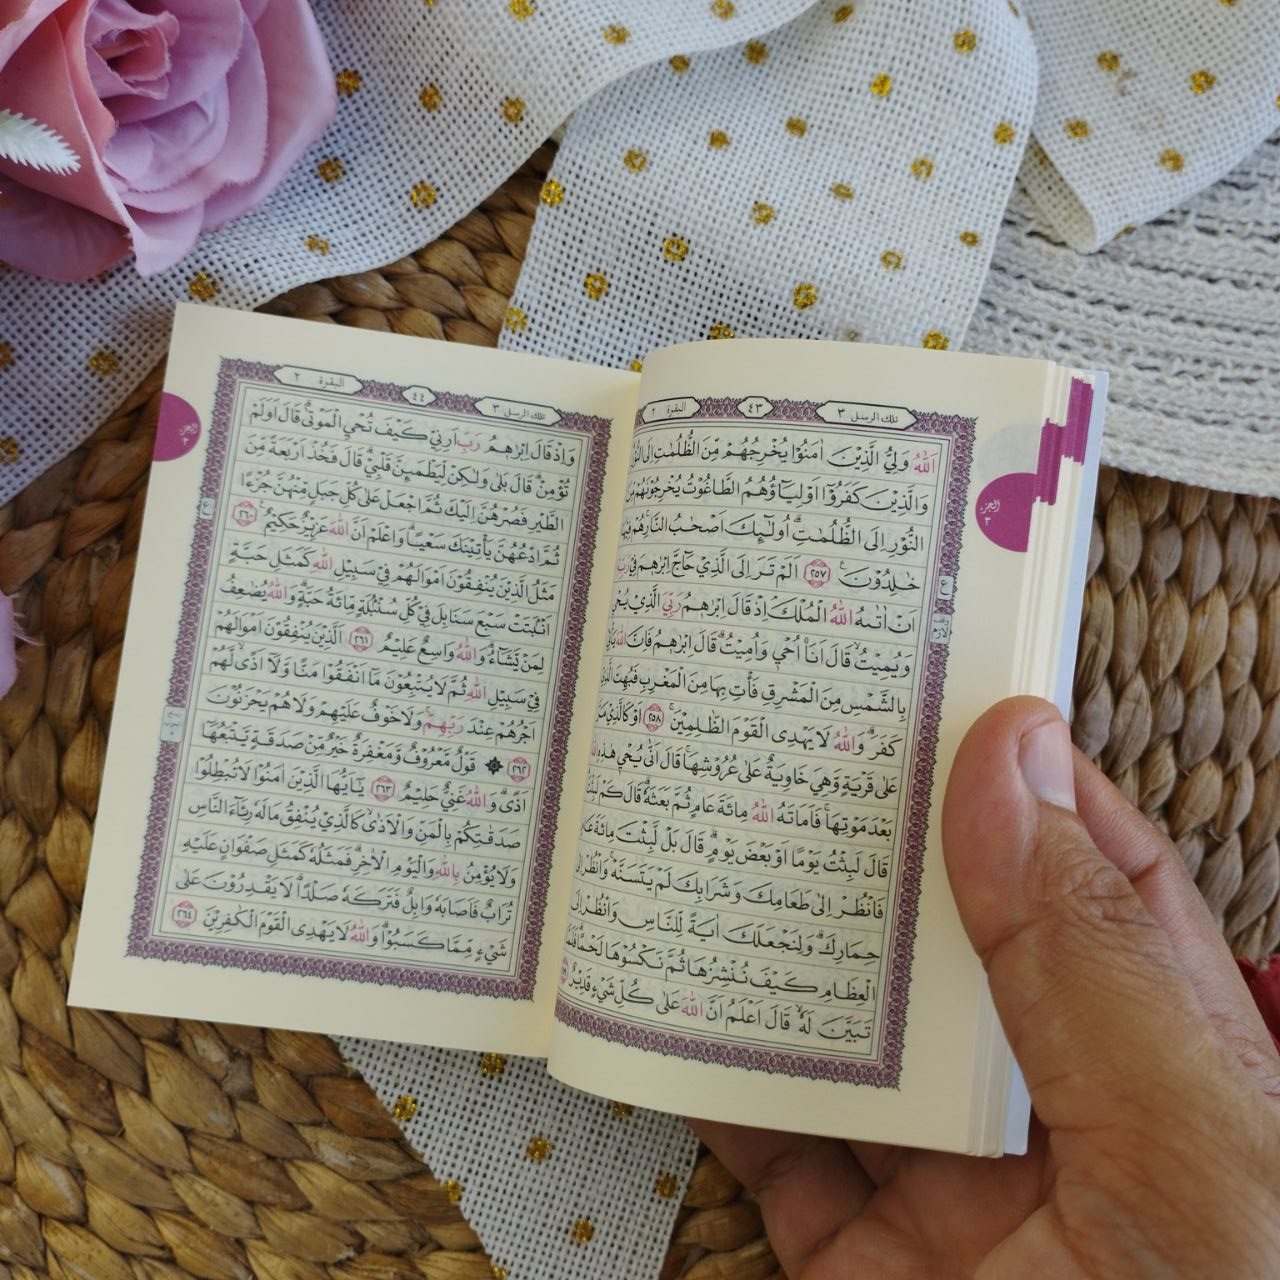 تلك الرسل ٣
٤٣
البقرة ٢
الجزء ٣
اَللّٰهُ وَلِيُّ الَّذٖينَ اٰمَنُوا يُخْرِجُهُمْ مِنَ الظُّلُمَاتِ اِلَى
وَالَّذٖينَ كَفَرُٓوا اَوْلِيَٓاؤُ۬هُمُ الطَّاغُوتُ يُخْرِجُونَهُمْ
النُّورِ اِلَى الظُّلُمَاتِ اُو۬لٰٓئِكَ اَصْحَابُ النَّارِ هُمْ فٖيهَا
خَالِدُونَ ﴿٢٥٧﴾ اَلَمْ تَرَ اِلَى الَّذٖي حَٓاجَّ اِبْرٰهٖمَ فٖي
اَنْ اٰتٰيهُ اللّٰهُ الْمُلْكَ اِذْ قَالَ اِبْرٰهٖمُ رَبِّيَ الَّذٖي
وَيُمٖيتُ قَالَ اَنَا۬ اُحْيٖ وَاُمٖيتُ قَالَ اِبْرٰهٖمُ فَاِنَّ اللّٰهَ يَأْتٖي
بِالشَّمْسِ مِنَ الْمَشْرِقِ فَأْتِ بِهَا مِنَ الْمَغْرِبِ فَبُهِتَ الَّذٖي
كَفَرَ وَاللّٰهُ لَا يَهْدِي الْقَوْمَ الظَّالِمٖينَ ﴿٢٥٨﴾ اَوْ كَالَّذٖي مَرَّ
عَلٰى قَرْيَةٍ وَهِيَ خَاوِيَةٌ عَلٰى عُرُوشِهَا قَالَ اَنّٰى يُحْيٖ هٰذِهِ
بَعْدَ مَوْتِهَا فَاَمَاتَهُ اللّٰهُ مِائَةَ عَامٍ ثُمَّ بَعَثَهُ قَالَ كَمْ لَبِثْتَ
قَالَ لَبِثْتُ يَوْمًا اَوْ بَعْضَ يَوْمٍ قَالَ بَلْ لَبِثْتَ مِائَةَ
فَانْظُرْ اِلٰى طَعَامِكَ وَشَرَابِكَ لَمْ يَتَسَنَّهْ وَانْظُرْ اِلٰى
حِمَارِكَ وَلِنَجْعَلَكَ اٰيَةً لِلنَّاسِ وَانْظُرْ اِلَى
الْعِظَامِ كَيْفَ نُنْشِزُهَا ثُمَّ نَكْسُوهَا لَحْمًا فَلَمَّا
تَبَيَّنَ لَهُ قَالَ اَعْلَمُ اَنَّ اللّٰهَ عَلٰى كُلِّ شَيْءٍ قَدٖيرٌ
تلك الرسل ٣
٤٤
البقرة ٢
الجزء ٣
وَاِذْ قَالَ اِبْرٰهٖمُ رَبِّ اَرِنٖي كَيْفَ تُحْيِ الْمَوْتٰى قَالَ اَوَلَمْ
تُؤْمِنْ قَالَ بَلٰى وَلٰكِنْ لِيَطْمَئِنَّ قَلْبٖي قَالَ فَخُذْ اَرْبَعَةً مِنَ
الطَّيْرِ فَصُرْهُنَّ اِلَيْكَ ثُمَّ اجْعَلْ عَلٰى كُلِّ جَبَلٍ مِنْهُنَّ جُزْءًا
ثُمَّ ادْعُهُنَّ يَأْتٖينَكَ سَعْيًا وَاعْلَمْ اَنَّ اللّٰهَ عَزٖيزٌ حَكٖيمٌ ﴿٢٦٠﴾
مَثَلُ الَّذٖينَ يُنْفِقُونَ اَمْوَالَهُمْ فٖي سَبٖيلِ اللّٰهِ كَمَثَلِ حَبَّةٍ
اَنْبَتَتْ سَبْعَ سَنَابِلَ فٖي كُلِّ سُنْبُلَةٍ مِائَةُ حَبَّةٍ وَاللّٰهُ يُضَاعِفُ
لِمَنْ يَشَٓاءُ وَاللّٰهُ وَاسِعٌ عَلٖيمٌ ﴿٢٦١﴾ اَلَّذٖينَ يُنْفِقُونَ اَمْوَالَهُمْ
فٖي سَبٖيلِ اللّٰهِ ثُمَّ لَا يُتْبِعُونَ مَٓا اَنْفَقُوا مَنًّا وَلَٓا اَذًى لَهُمْ
اَجْرُهُمْ عِنْدَ رَبِّهِمْ وَلَا خَوْفٌ عَلَيْهِمْ وَلَا هُمْ يَحْزَنُونَ
﴿٢٦٢﴾ قَوْلٌ مَعْرُوفٌ وَمَغْفِرَةٌ خَيْرٌ مِنْ صَدَقَةٍ يَتْبَعُهَٓا
اَذًى وَاللّٰهُ غَنِيٌّ حَلٖيمٌ ﴿٢٦٣﴾ يَٓا اَيُّهَا الَّذٖينَ اٰمَنُوا لَا تُبْطِلُوا
صَدَقَاتِكُمْ بِالْمَنِّ وَالْاَذٰى كَالَّذٖي يُنْفِقُ مَالَهُ رِئَٓاءَ النَّاسِ
وَلَا يُؤْمِنُ بِاللّٰهِ وَالْيَوْمِ الْاٰخِرِ فَمَثَلُهُ كَمَثَلِ صَفْوَانٍ عَلَيْهِ
تُرَابٌ فَاَصَابَهُ وَابِلٌ فَتَرَكَهُ صَلْدًا لَا يَقْدِرُونَ عَلٰى
شَيْءٍ مِمَّا كَسَبُوا وَاللّٰهُ لَا يَهْدِي الْقَوْمَ الْكَافِرٖينَ ﴿٢٦٤﴾